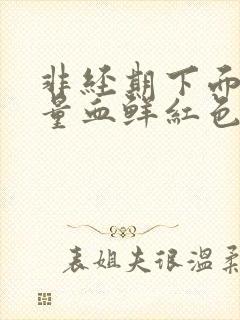 非经期下面
量血鲜红色
表姐夫很温柔